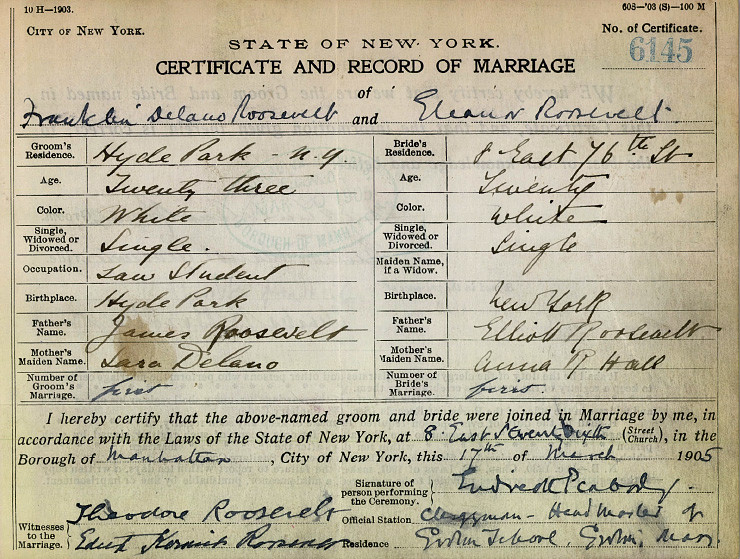 10 H—1903.
60S—'03 (S)—100 M
CITY OF NEW YORK.
No. of Certificate.
6145
STATE OF NEW YORK.
CERTIFICATE AND RECORD OF MARRIAGE
of
Franklin Delano Roosevelt and Eleanor Roosevelt.
Groom's Residence. Hyde Park - N.Y.
Bride's Residence. 8 East 76th St
Age. Twenty three
Age. Twenty
Color. White
Color. White
Single, Widowed or Divorced. Single.
Single, Widowed or Divorced. Single
Occupation. Law Student
Maiden Name, if a Widow.
Birthplace. Hyde Park
Birthplace. New York
Father's Name. James Roosevelt
Father's Name. Elliott Roosevelt
Mother's Maiden Name. Sara Delano
Mother's Maiden Name. Anna R Hall
Number of Groom's Marriage. first
Number of Bride's Marriage. first.
I hereby certify that the above-named groom and bride were joined in Marriage by me, in
accordance with the Laws of the State of New York, at 8. East (Street Church), in the
Borough of Manhattan, City of New York, this 17th of March 1905
Signature of person performing the Ceremony. Endicott Peabody.
Official Station Clergyman - Head Master of
Residence Groton School, Groton, Mass.
Witnesses to the Marriage. Theodore Roosevelt
Edith Kermit Roosevelt